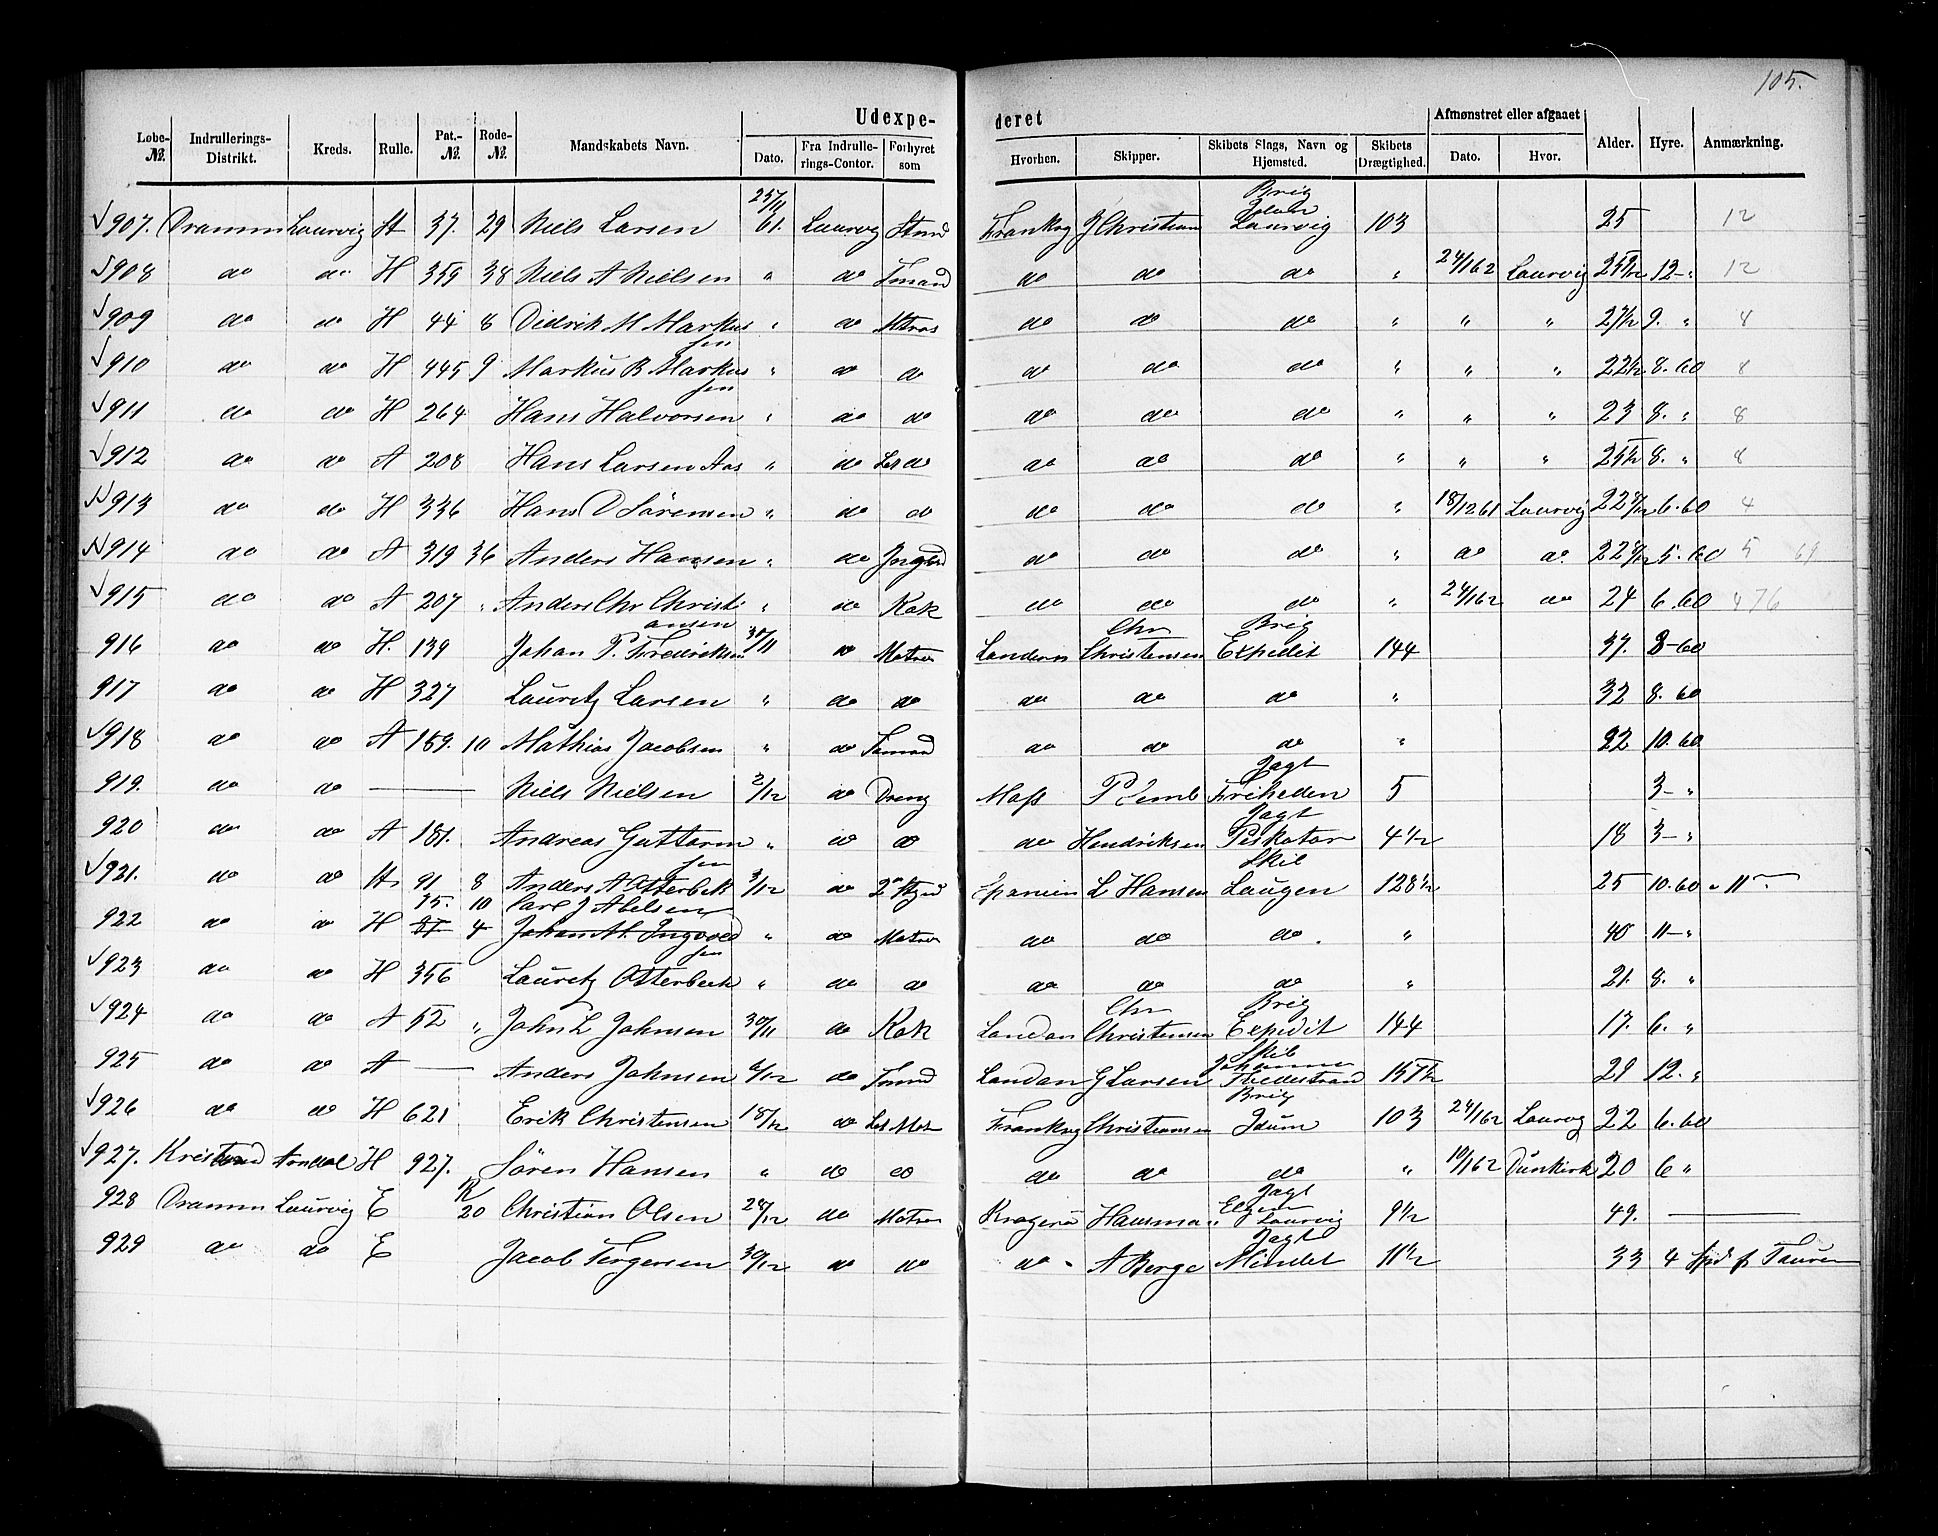 105.
Udexpe- deret
Afmønstret eller afgaaet
Løbe-№. Indrullerings-Distrikt. Kreds. Rulle. Pat.-№. Rode-№. Mandskabets Navn. Dato. Fra Indrullerings-Contor. Forhyret som Hvorhen. Skipper. Skibets Slags, Navn og Hjemsted. Skibets Drægtighed. Dato. Hvor. Alder. Hyre. Anmærkning.
907. Dramm Laurvig St 37. 29 Niels Larsen 25/11 61. Laurvg Stmd Frankrg J Christian Brig Laurvig 103 25 12
908 do do H 359 38 Niels A Nielsen " do Tmand do do do " 24/1 62 Laurvig 12- " 12
909 do do H 44 8 Didrik M Markussen " do Matros do do do " " " 27½ 9. " 8
910 do do H 445 9 Markus B Markussen " do do do do do " " " 22½ 8. 60 8
911 do do H 264 Hans Halvorsen " do do do do do " " " 23 8. " 8
912 do do A 208 Hans Larsen Aas " do Let do do do do " " " 25½ 8. " 8
913 do do H 336 Hans D Sörensen " do do do do do " 18/12 61 Laurvig 6. 60 4
914 do do A 319 36 Anders Hansen " do Jngmd do do do " do do. 5. 60 5 69
915 do do A 207 " Anders Chr Christiansen " do Kok do do do " 24/1 62 do 24 6. 60 4 76
916 do do H. 139 Johan P. Fredriksen 30/11 do Matros London Chr Christensen Brig Expedit 144 37. 8-60
917 do do H 327 Lauretz Larsen " do do do do do " 32 8. 60
918 do do A 189. 10 Mathias Jacobsen " do Tmand do do do " 22 10. 60
919. do do — Niels Nielsen 2/12 do Dreng Moss P Lemb Jagt Friheden 5 3- "
920 do do A 181. Andreas Guttormsen " do do do Hendriksen Jagt Piskator 4½ 18 3- "
921. do do St 91 8 Anders A Otterbek 3/12 do 2n Stymd Spanien L Hansen Skib Laugen 128½ 25 10. 60 " 11
922 do do H 95. 10 Carl J Abelsen 4 Johan M. Ingvoldsen " do Matros do do do. " 40 11- "
923 do do H 356 Lauretz Otterbeck " do do do do do " 21. 8. "
924 do do A 52 " John L Johnsen 30/11 do Kok London Chr Christensen Brig Expedit 144 17. 6. "
925 do do A — Anders Johnsen 6/12 do Tmand London G Larsen Skib Johanne Thvedestrand 157½ 29 12. "
926 do do H 621 Erik Christensen 18/12 do Let Mat Frankrg Christiansen Brig Idun 103 24/1 62 Laurvg 22 6. 60
927. Kristsand Arndal H 927. Sören Hansen " do do do do do " 10/1 62 Dünkirk 20 6 "
928 Dramm Laurvig E 20 Christian Olsen 28/12 do Matros Kragerö Hansman Jagt Laurvig 9½ 49. —
929 do do E Jacob Torgersen 30/12 do do do " A Berge Jagt Mindet 11½ 33 4 Spd